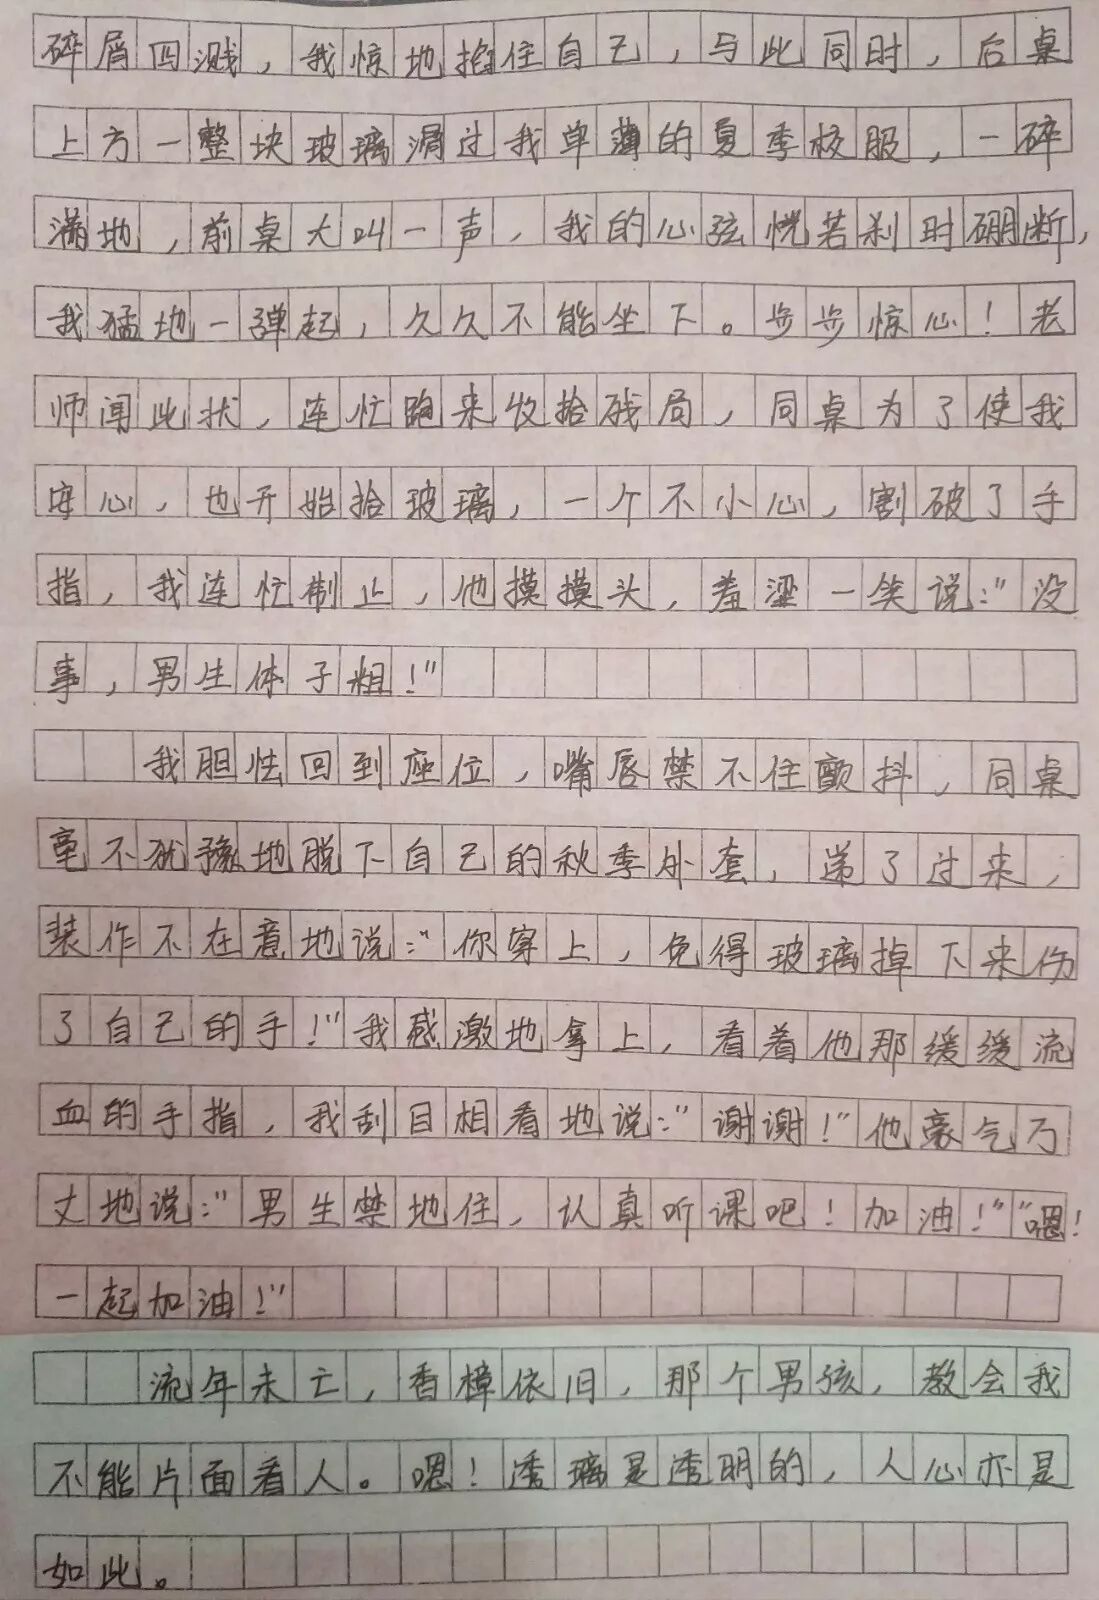 碎屑四溅，我惊地掐住自己，与此同时，后桌
上方一整块玻璃滑过我单薄的夏季校服，一碎
满地，前桌大叫一声，我的心弦恍若刹时硼断，
我猛地一弹起，久久不能坐下。步步惊心！老
师闻此状，连忙跑来收拾残局，同桌为了使我
安心，也开始拾玻璃，一个不小心，割破了手
指，我连忙制止，他摸摸头，羞涩一笑说：“没
事，男生体子粗！”
我胆怯回到座位，嘴唇禁不住颤抖，同桌
毫不犹豫地脱下自己的秋季外套，递了过来，
装作不在意地说：“你穿上，免得玻璃掉下来伤
了自己的手！”我感激地拿上，看着他那缓缓流
血的手指，我刮目相看地说：“谢谢！”他豪气万
丈地说：“男生禁地住，认真听课吧！加油！”“嗯！
一起加油！”
流年未亡，香樟依旧，那个男孩，教会我
不能片面看人。嗯！透璃是透明的，人心亦是
如此。